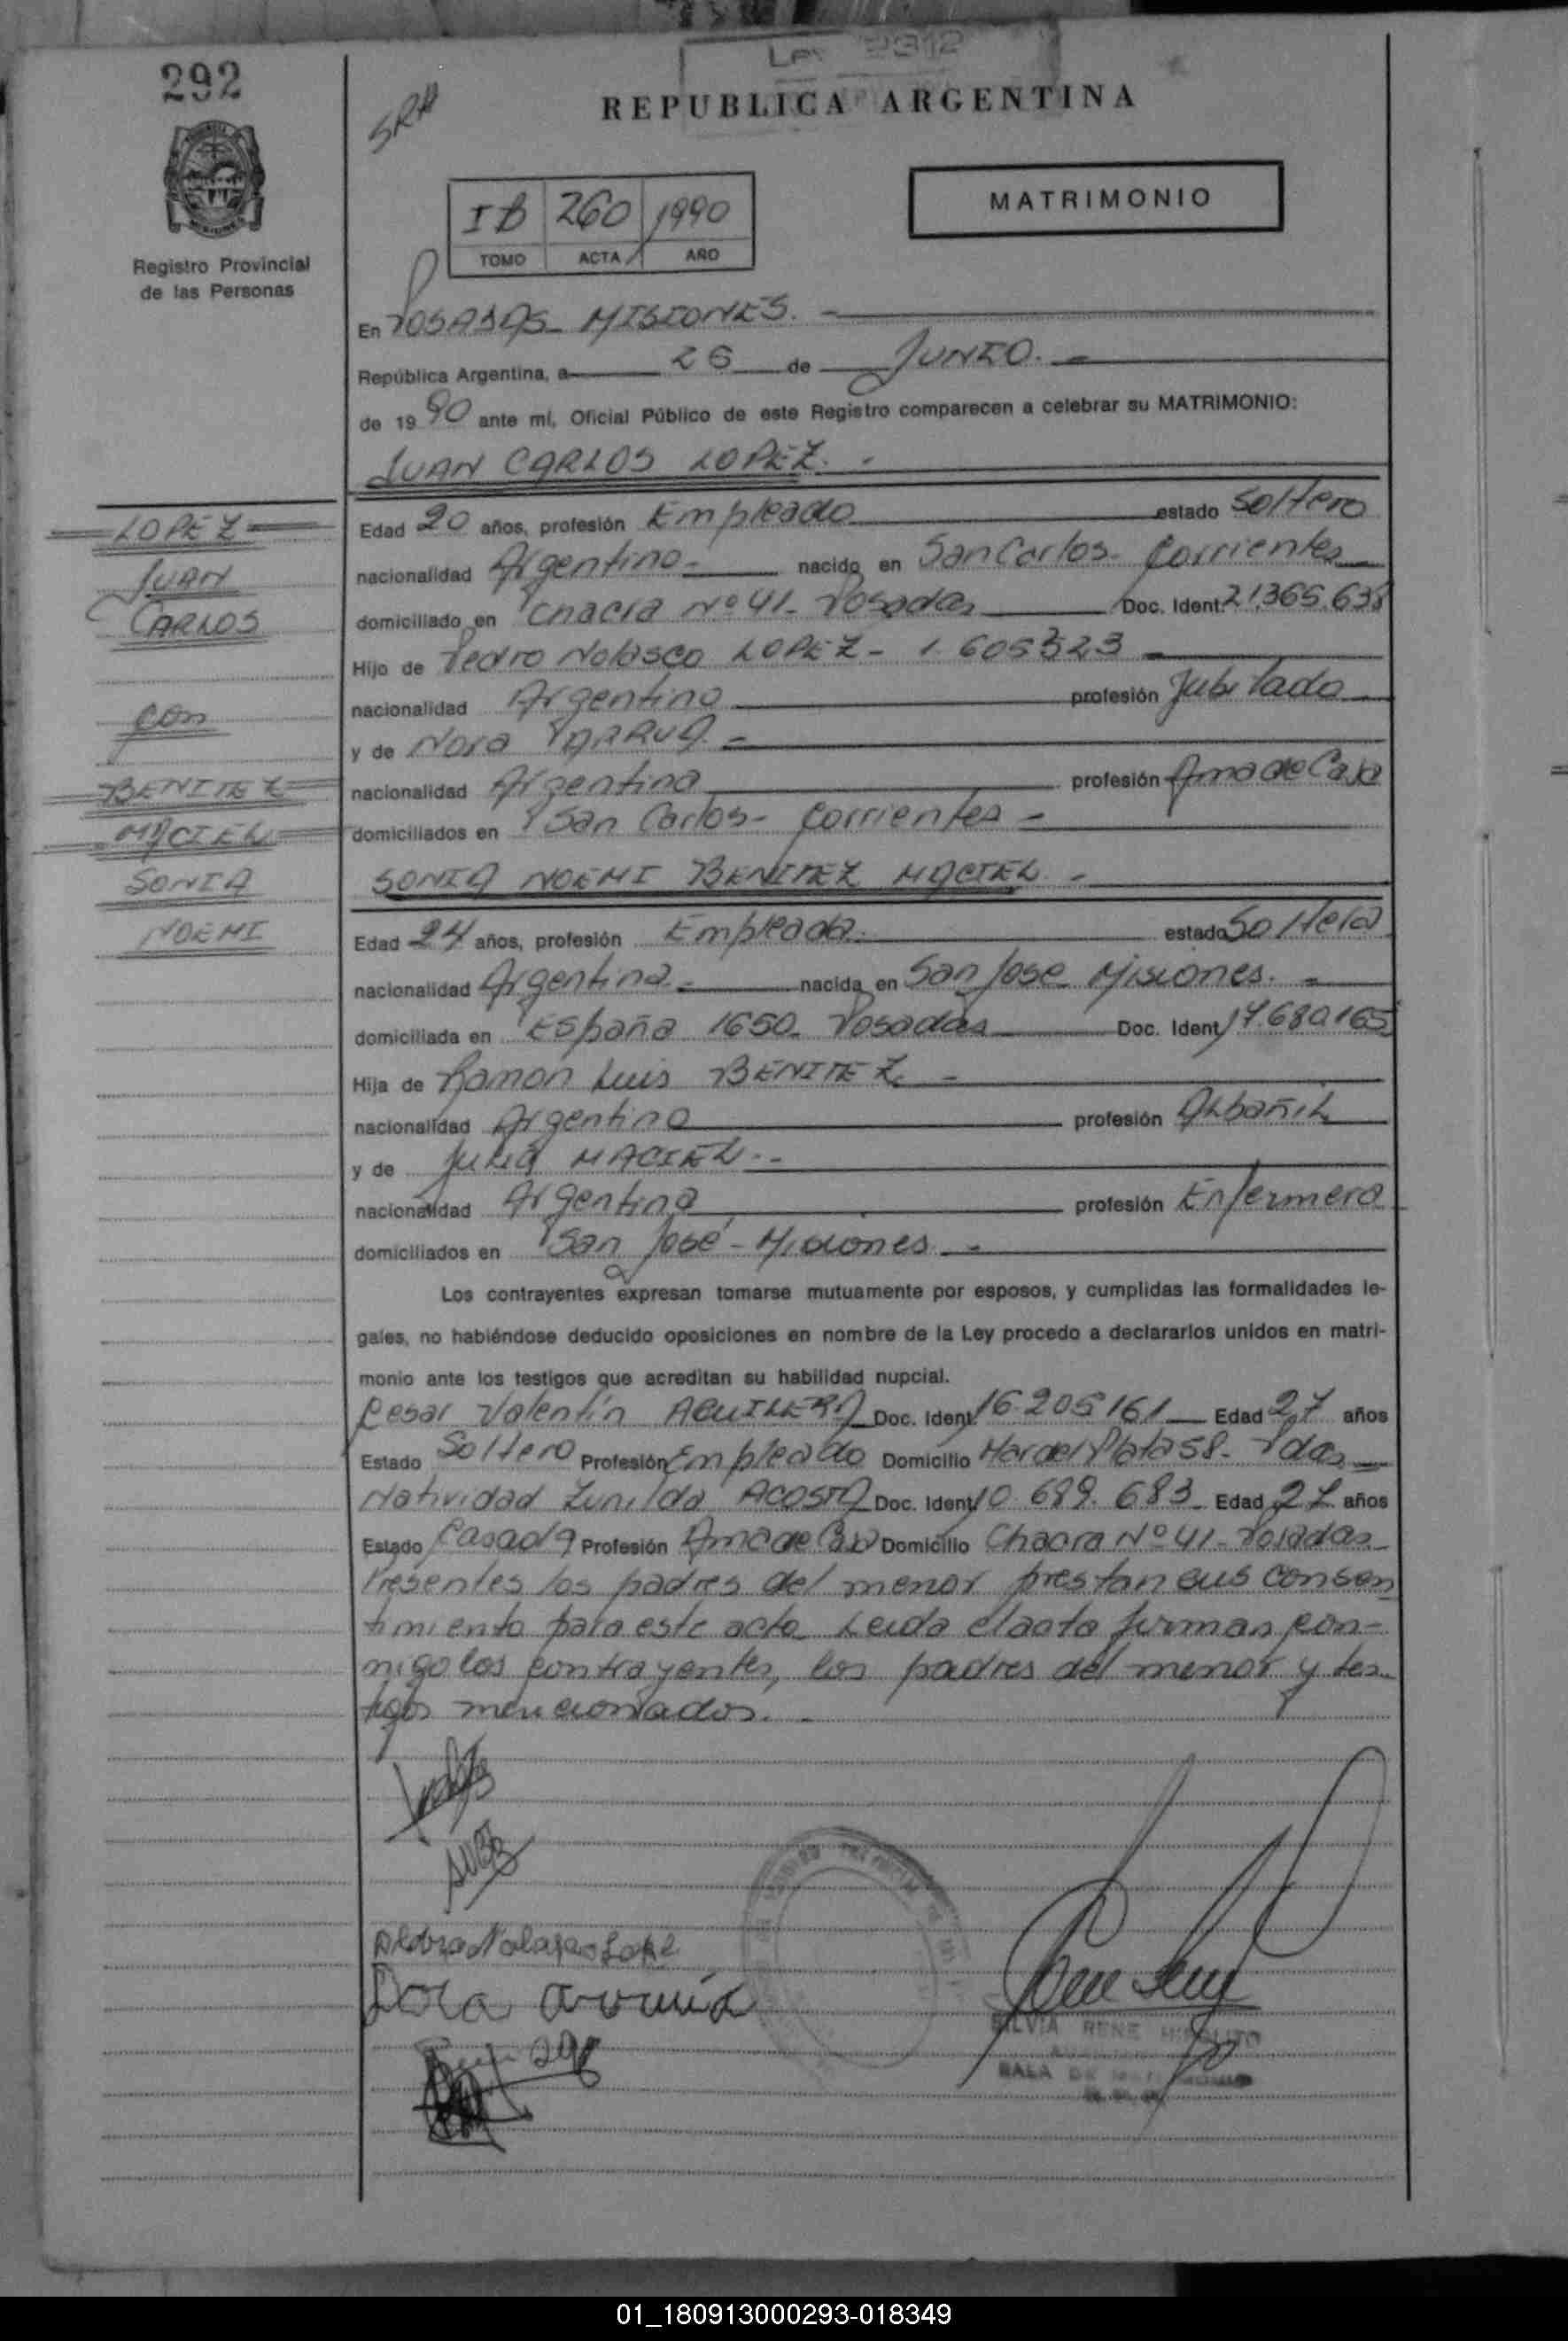 292
Ley 2312
REPUBLICA ARGENTINA
SRH
MATRIMONIO
IB 260 1990
TOMO ACTA AÑO
Registro Provincial
de las Personas
En POSADAS MISIONES. -
República Argentina, a 26 de JUNIO. -
de 19 90 ante mí, Oficial Público de este Registro comparecen a celebrar su MATRIMONIO:
JUAN CARLOS LOPEZ. -
LOPEZ
JUAN
CARLOS
con
BENITEZ
MACIEL
SONIA
NOEMI
Edad 20 años, profesión Empleado estado Soltero
nacionalidad Argentino - nacido en San Carlos - Corrientes
domiciliado en Chacra Nº 41 - Posadas Doc. Ident. 21.365.638
Hijo de Pedro Nolasco LOPEZ - 1.605323 -
nacionalidad Argentino profesión Jubilado
y de -
nacionalidad Argentina profesión Ama de Casa
domiciliados en San Carlos - Corrientes -
SONIA NOEMI BENITEZ MACIEL. -
Edad 24 años, profesión Empleada. estado Soltera
nacionalidad Argentina - nacida en San Jose Misiones. -
domiciliada en España 1650 - Posadas Doc. Ident 17.680.165
Hija de Ramon Luis BENITEZ -
nacionalidad Argentino profesión Albañil
y de Julia MACIEL. -
nacionalidad Argentina profesión Enfermera
domiciliados en San José - Misiones -
Los contrayentes expresan tomarse mutuamente por esposos, y cumplidas las formalidades le-
gales, no habiéndose deducido oposiciones en nombre de la Ley procedo a declararlos unidos en matri-
monio ante los testigos que acreditan su habilidad nupcial.
Cesar Valentín AGUILERA Doc. Ident 16.205161 Edad 27 años
Estado Soltero Profesión Empleado Domicilio Mar del Plata 58 - Pdas
Natividad Zunilda ACOSTA Doc. Ident 10.689.683 Edad años
Estado Casada Profesión Ama de Casa Domicilio Chacra Nº 41 - Posadas
Presentes los padres del menor prestan sus consen
timiento para este acto Leida el acta firman con-
migo los contrayentes, los padres del menor y tes
tigos mencionados. -
SILVIA RENE HIPOLITO
SALA DE MATRIMONIO
01_180913000293-018349